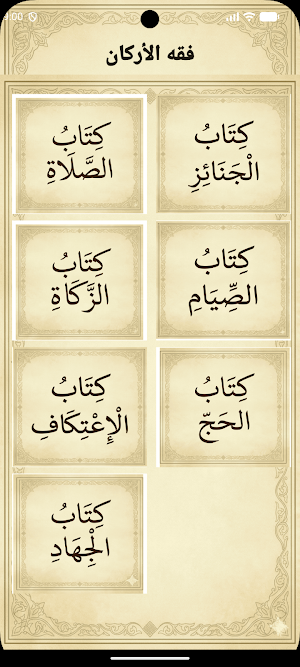 9:00
فقه الأركان
كِتَابُ
الْجَنَائِزِ
كِتَابُ
الصَّلَاةِ
كِتَابُ
الصِّيَامِ
كِتَابُ
الزَّكَاةِ
كِتَابُ
الحَجّ
كِتَابُ
الْإِعْتِكَافِ
كِتَابُ
الْجِهَادِ